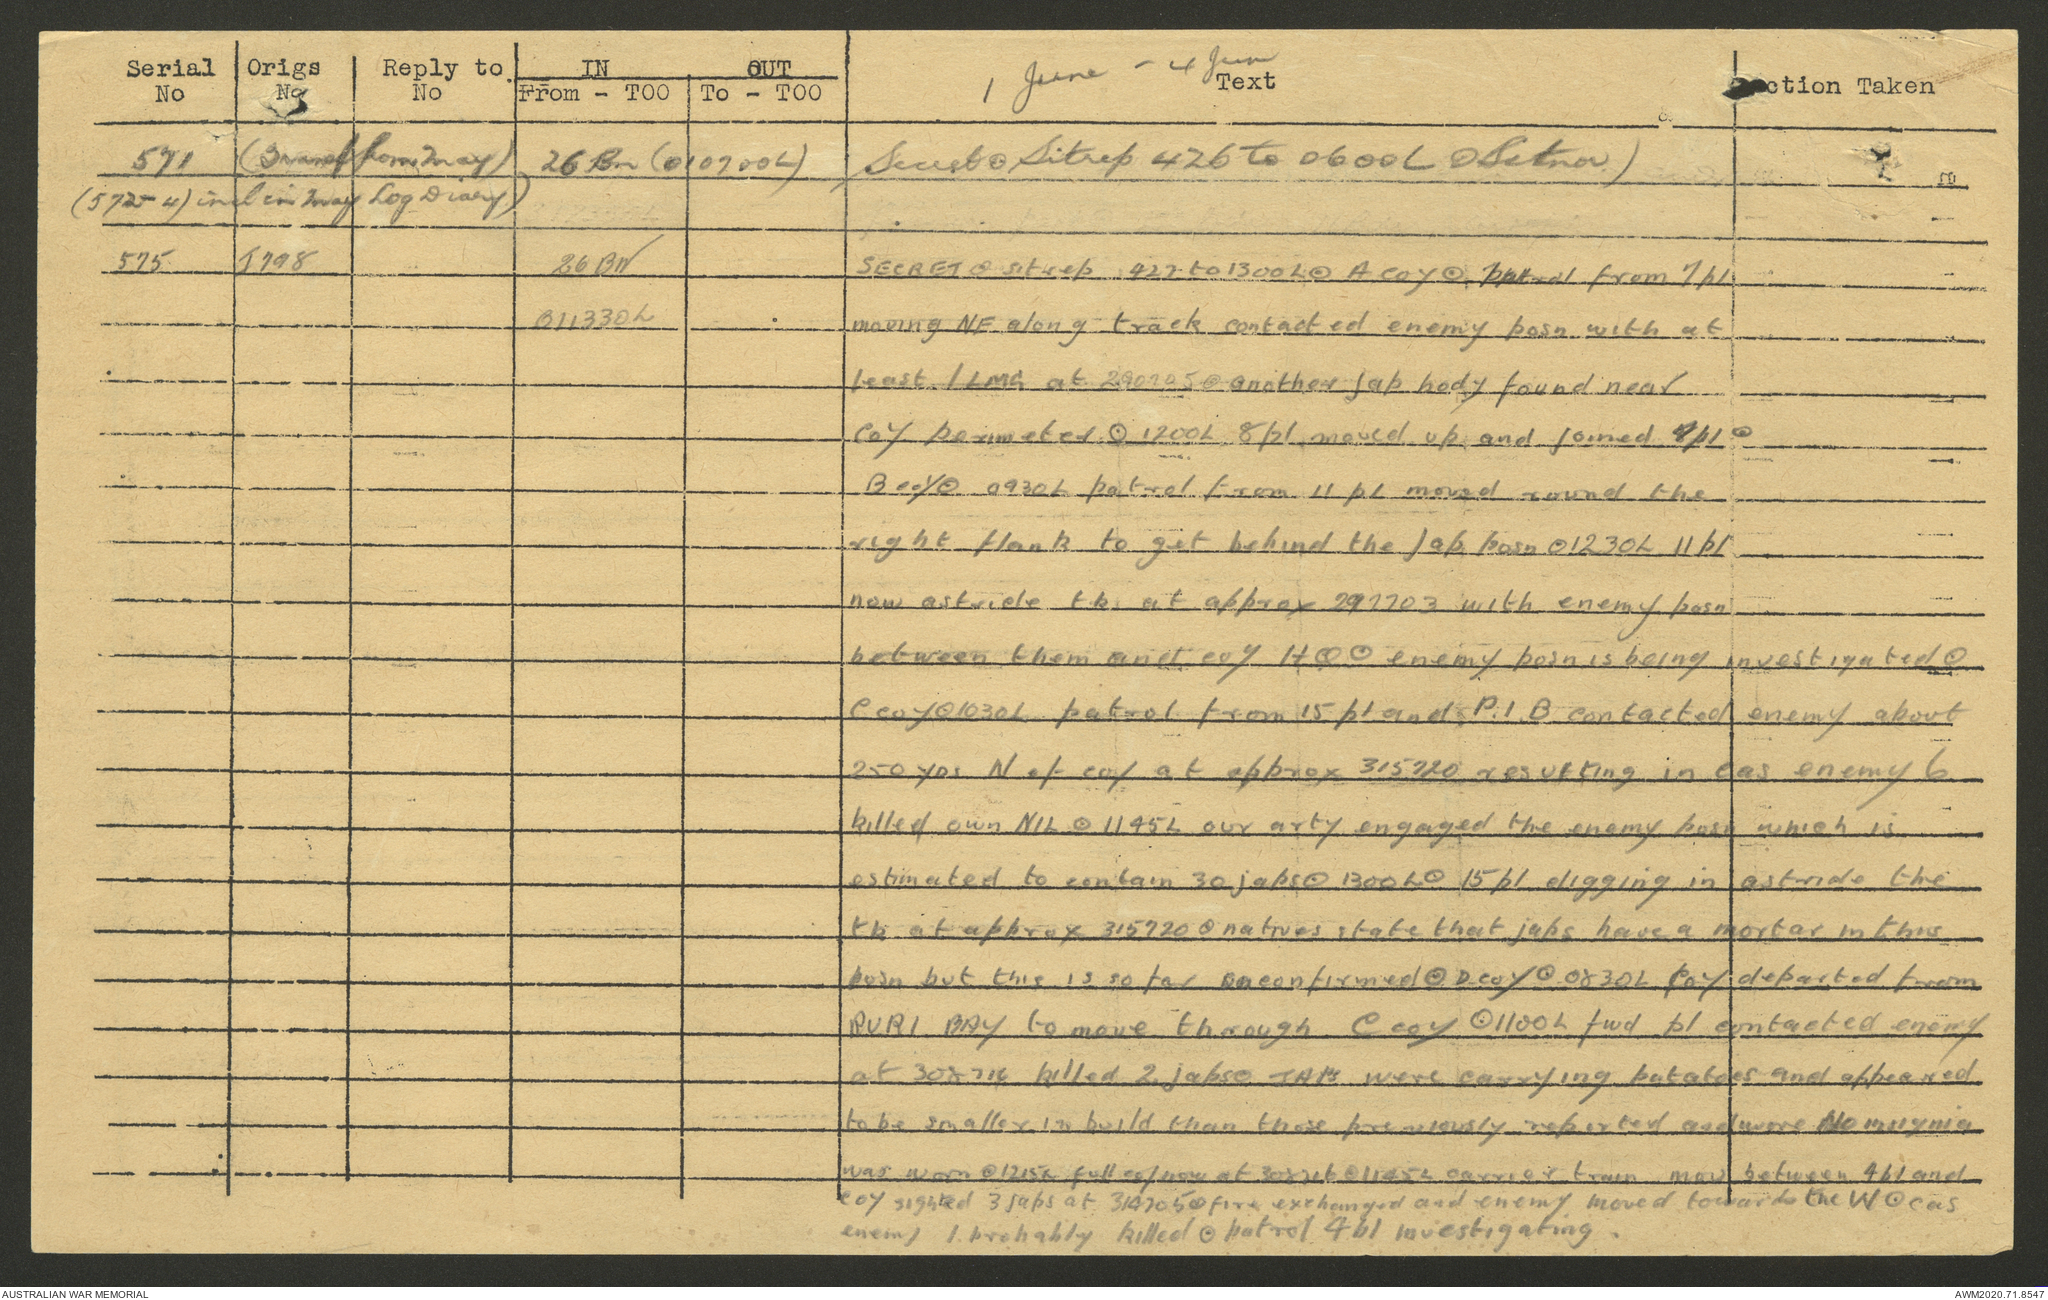 1 June - 4 Jun
Serial No
Origs No
Reply to No
IN
From - TOO
OUT
To - TOO
Text
Action Taken
571 (Transf from May) 26 Bn (010700L) Secret ⊙ Sitrep 426 to 0600L ⊙ Sitnor)
(572-4) incl in May Log Diary)
575 J798 26 BN SECRET ⊙ sitrep 427 to 1300L ⊙ A coy ⊙ patrol from 7 pl
011330L moving NE along track contacted enemy posn with at
least 1 LMG at 290705 ⊙ another jap body found near
coy perimeter ⊙ 1200L 8 pl moved up and joined 7 pl ⊙
B coy ⊙ 0930L patrol from 11 pl moved round the
right flank to get behind the jap posn ⊙ 1230L 11 pl
now astride tk at approx 297703 with enemy posn
between them and coy HQ ⊙ enemy posn is being investigated ⊙
C coy ⊙ 1030L patrol from 15 pl and P.I.B contacted enemy about
250 yds N of coy at approx 315720 resulting in cas enemy 6
killed own NIL ⊙ 1145L our arty engaged the enemy posn which is
estimated to contain 30 japs ⊙ 1300L ⊙ 15 pl digging in astride the
tk at approx 315720 ⊙ natives state that japs have a mortar in this
posn but this is so far unconfirmed ⊙ D coy ⊙ 0830L Coy departed from
RURI BAY to move through C coy ⊙ 1100L fwd pl contacted enemy
at 308716 killed 2 japs ⊙ JAPS were carrying potatoes and appeared
to be smaller in build than those previously reported and wore No insignia
was worn ⊙ 1215L full coy now at 308716 ⊙ 1145L carrier train mov between 4 pl and
coy sighted 3 japs at 314705 ⊙ fire exchanged and enemy moved towards the W ⊙ cas
enemy 1 probably killed ⊙ patrol 4 pl investigating.
AUSTRALIAN WAR MEMORIAL
AWM2020.71.8547